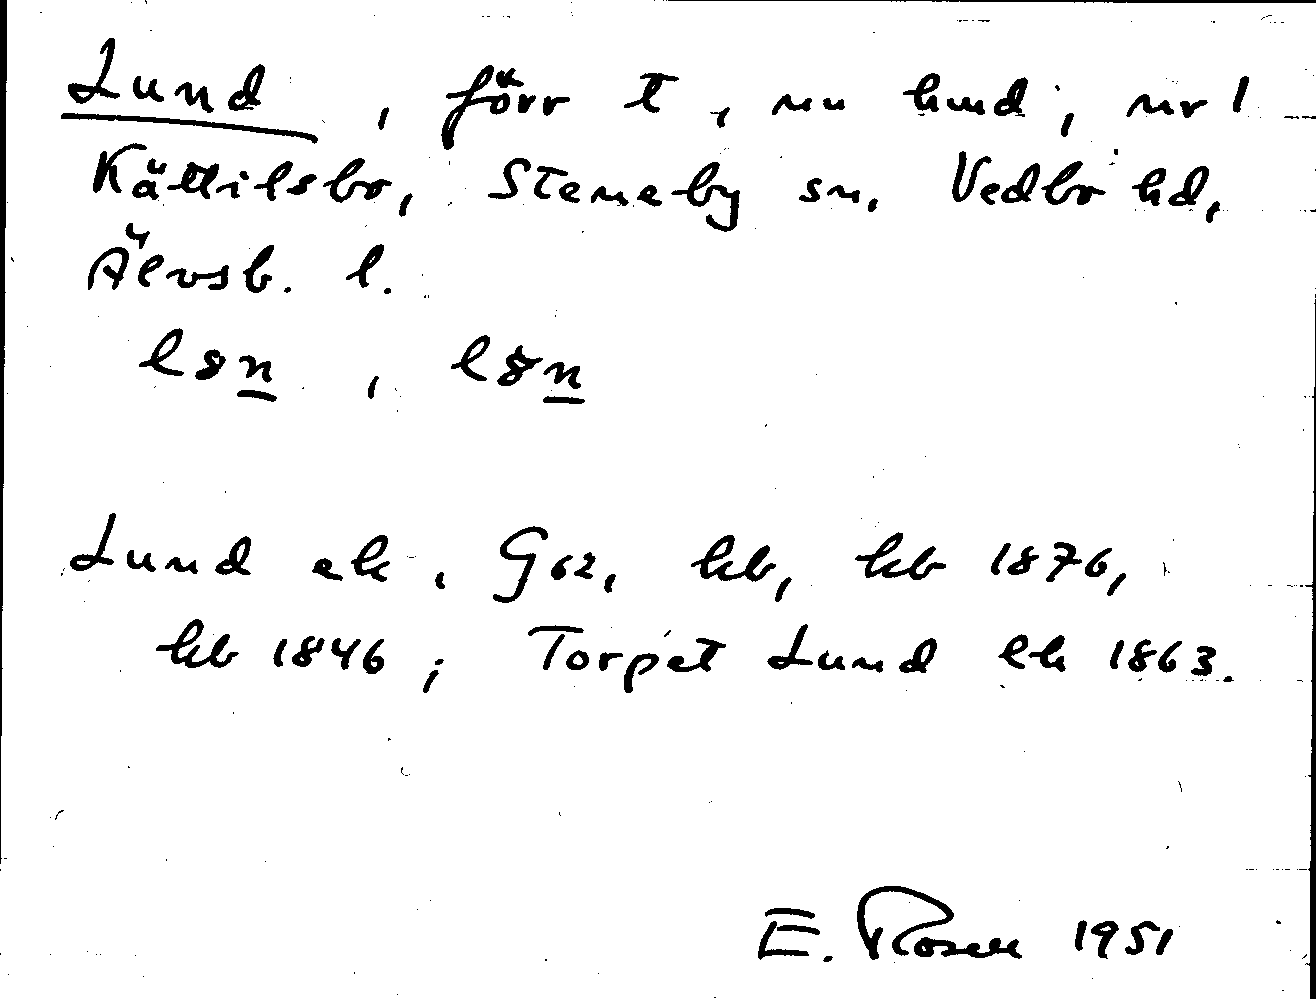 Lund, förr t, nu hmd, nr 1
Kättilsbo, Steneby sn, Vedbo hd,
Älvsb. l.
Lund ek, G62, hb, kb 1876,
kb 1846; Torpet Lund ek 1863.
E. Rosell 1951